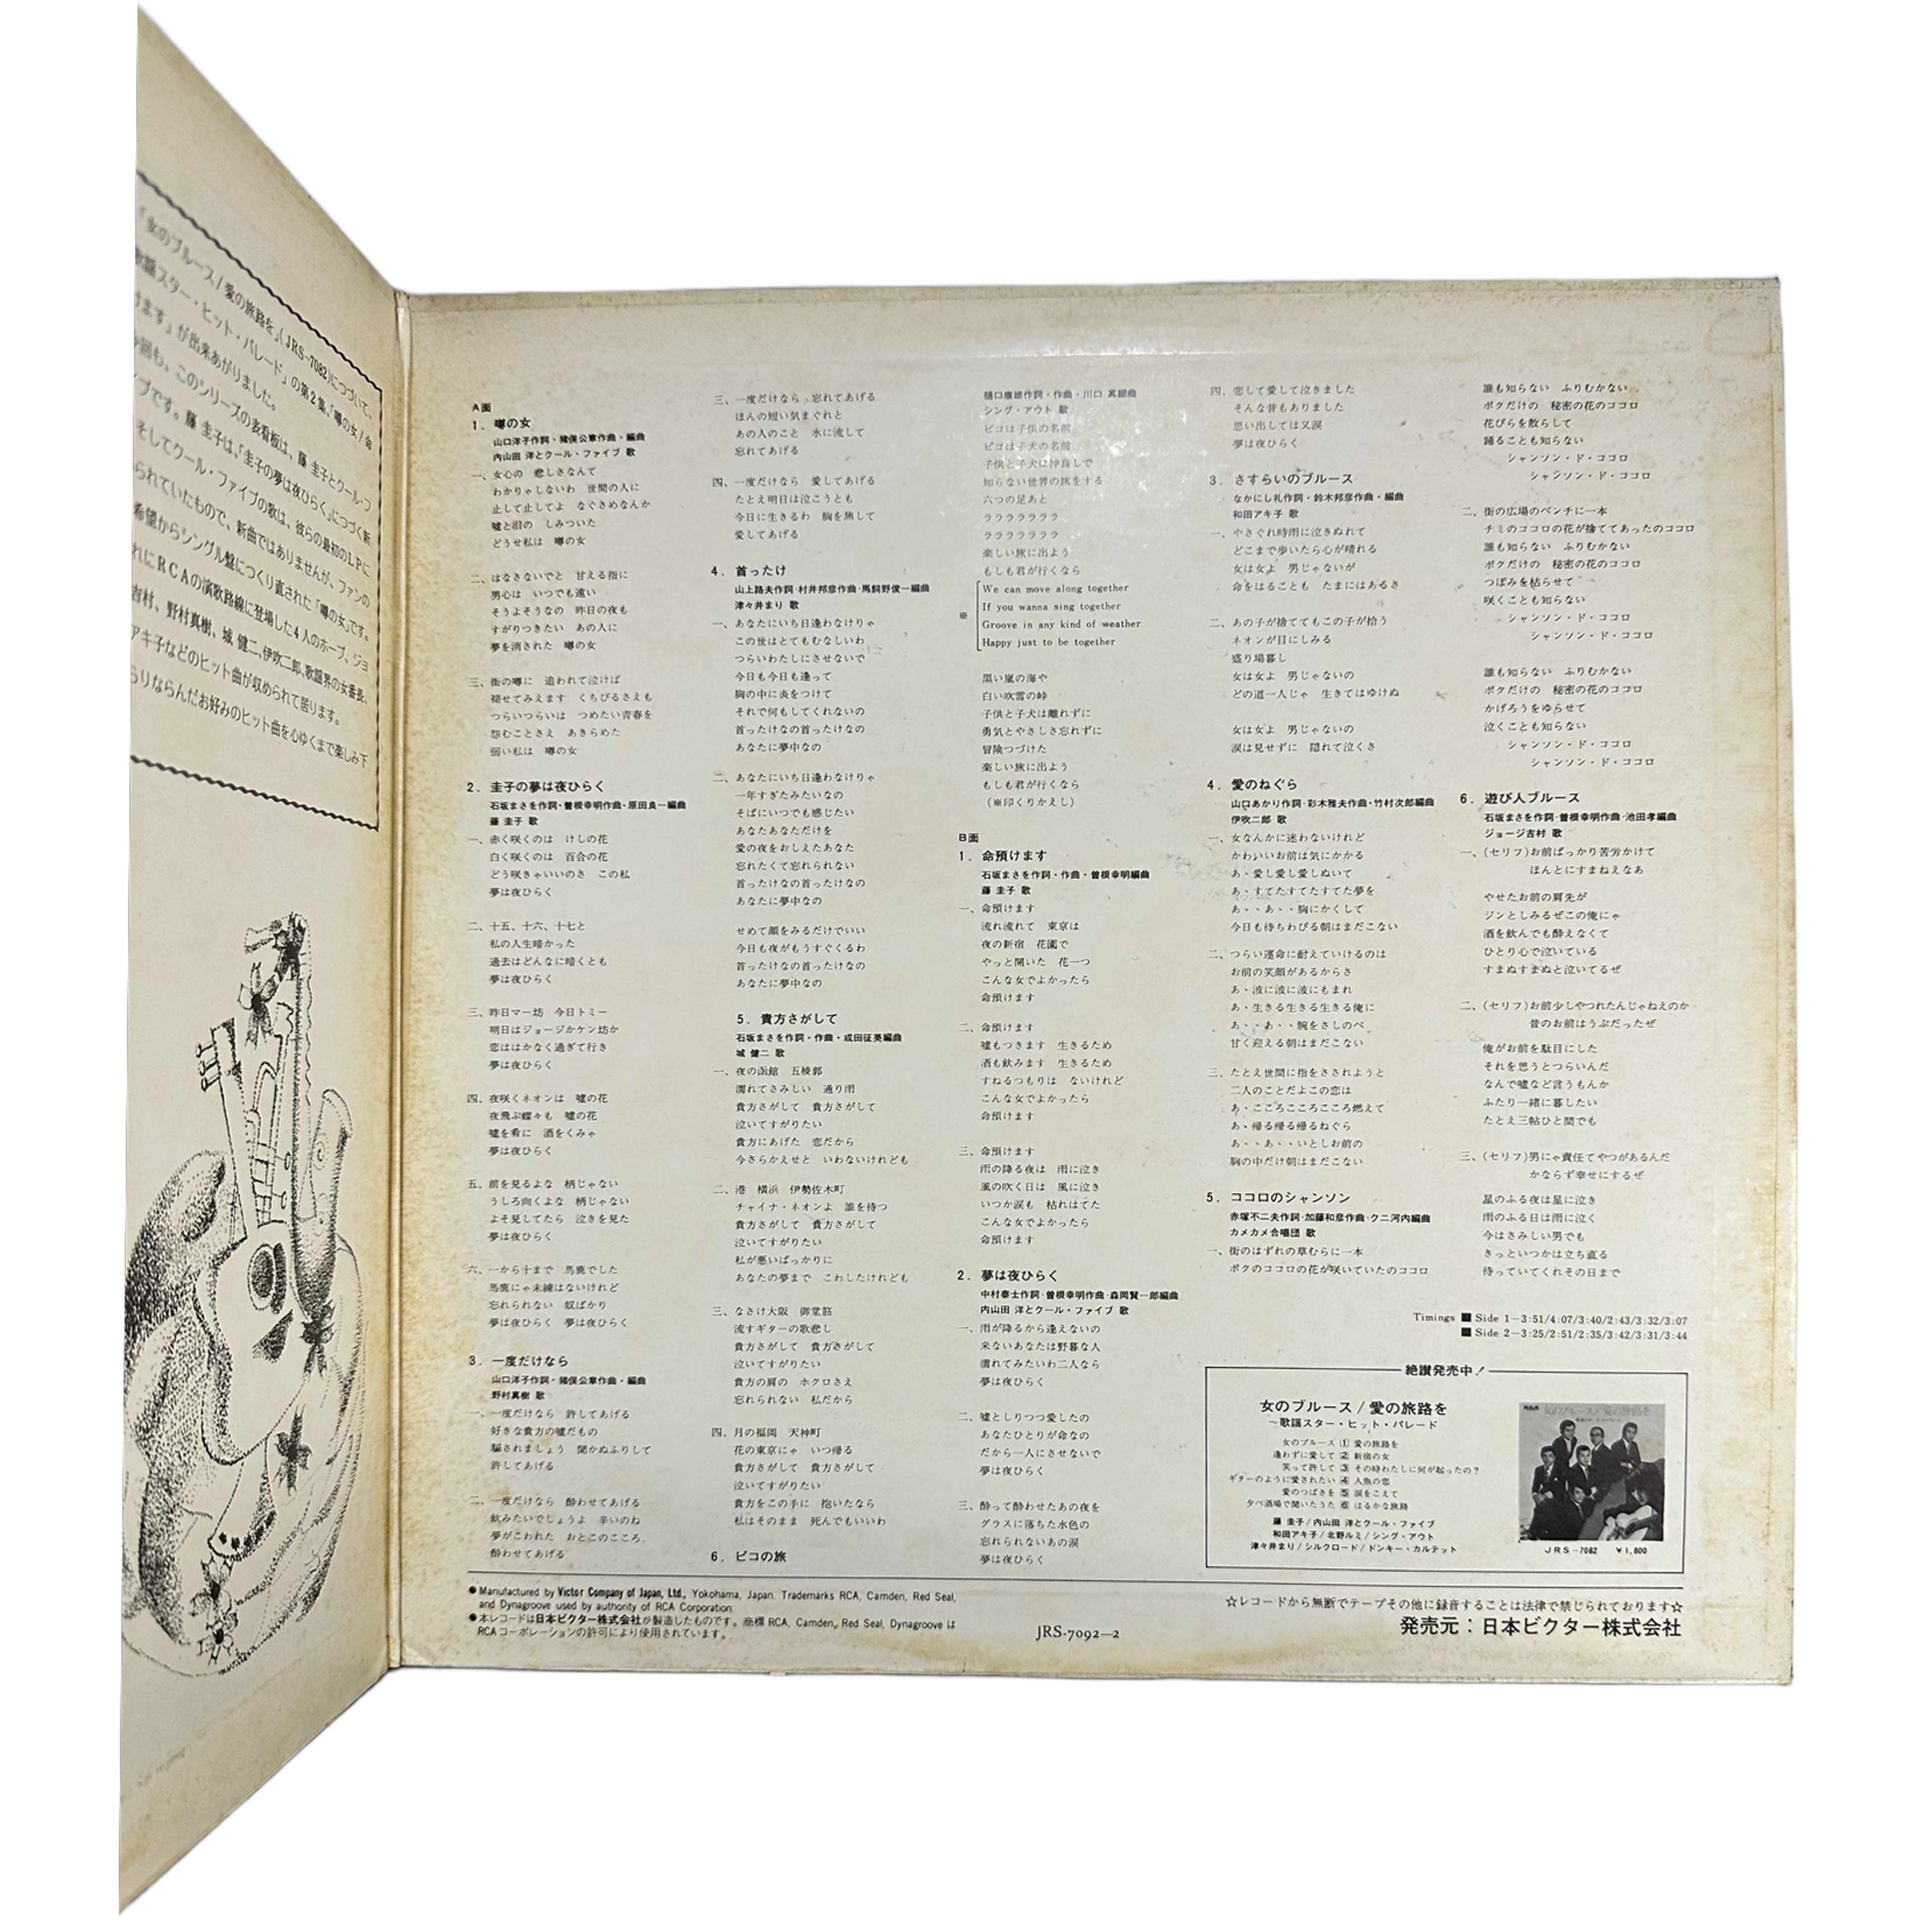 「女のブルース/愛の旅路を」(JRS-7082)につづいて、
歌謡スター・ヒット・パレード」の第2集、「噂の女/命
けます」が出来あがりました。
回も、このシリーズの表看板は、藤 圭子とクール・フ
ブです。藤 圭子は、「圭子の夢は夜ひらく」につづく新
そしてクール・ファイブの歌は、彼らの最初のLPに
られていたもので、新曲ではありませんが、ファンの
希望からシングル盤につくり直された「噂の女」です。
れにRCAの演歌路線に登場した4人のホープ、ジョ
吉村、野村真樹、城 健二、伊吹二郎、歌謡界の女番長、
アキ子などのヒット曲が収められて居ります。
らりならんだお好みのヒット曲を心ゆくまで楽しみ下
A面
1. 噂の女
山口洋子作詞・猪俣公章作曲・編曲
内山田 洋とクール・ファイブ 歌
一、女心の 悲しさなんて
わかりゃしないわ 世間の人に
止して止してよ なぐさめなんか
嘘と泪の しみついた
どうせ私は 噂の女
二、はなさないでと 甘える指に
男心は いつでも遠い
そうよそうなの 昨日の夜も
すがりつきたい あの人に
夢を消された 噂の女
三、街の噂に 追われて泣けば
褪せてみえます くちびるさえも
つらいつらいは つめたい青春を
怨むことさえ あきらめた
弱い私は 噂の女
2. 圭子の夢は夜ひらく
石坂まさを作詞・曽根幸明作曲・原田良一編曲
藤 圭子 歌
一、赤く咲くのは けしの花
白く咲くのは 百合の花
どう咲きゃいいのさ この私
夢は夜ひらく
二、十五、十六、十七と
私の人生暗かった
過去はどんなに暗くとも
夢は夜ひらく
三、昨日マー坊 今日トミー
明日はジョージかケン坊か
恋ははかなく過ぎて行き
夢は夜ひらく
四、夜咲くネオンは 嘘の花
夜飛ぶ蝶々も 嘘の花
嘘を肴に 酒をくみゃ
夢は夜ひらく
五、前を見るよな 柄じゃない
うしろ向くよな 柄じゃない
よそ見してたら 泣きを見た
夢は夜ひらく
六、一から十まで 馬鹿でした
馬鹿にゃ未練はないけれど
忘れられない 奴ばかり
夢は夜ひらく 夢は夜ひらく
3. 一度だけなら
山口洋子作詞・猪俣公章作曲・編曲
野村真樹 歌
一、一度だけなら 許してあげる
好きな貴方の嘘だもの
騙されましょう 聞かぬふりして
許してあげる
二、一度だけなら 酔わせてあげる
飲みたいでしょうよ 辛いのね
夢がこわれた おとこのこころ
酔わせてあげる
三、一度だけなら 忘れてあげる
ほんの短い気まぐれと
あの人のこと 水に流して
忘れてあげる
四、一度だけなら 愛してあげる
たとえ明日は泣こうとも
今日に生きるわ 胸を焦して
愛してあげる
4. 首ったけ
山上路夫作詞・村井邦彦作曲・馬飼野俊一編曲
津々井まり 歌
一、あなたにいち日逢わなけりゃ
この世はとてもむなしいわ
つらいわたしにさせないで
今日も今日も逢って
胸の中に炎をつけて
それで何もしてくれないの
首ったけなの首ったけなの
あなたに夢中なの
二、あなたにいち日逢わなけりゃ
一年すぎたみたいなの
そばにいつでも感じたい
あなたあなただけを
愛の夜をおしえたあなた
忘れたくて忘れられない
首ったけなの首ったけなの
あなたに夢中なの
せめて顔をみるだけでいい
今日も夜がもうすぐくるわ
首ったけなの首ったけなの
あなたに夢中なの
5. 貴方さがして
石坂まさを作詞・作曲・成田征英編曲
城 健二 歌
一、夜の函館 五稜郭
濡れてさみしい 通り雨
貴方さがして 貴方さがして
泣いてすがりたい
貴方にあげた 恋だから
今さらかえせと いわないけれども
二、港 横浜 伊勢佐木町
チャイナ・ネオンよ 誰を待つ
貴方さがして 貴方さがして
泣いてすがりたい
私が悪いばっかりに
あなたの夢まで こわしたけれども
三、なさけ大阪 御堂筋
流すギターの歌悲し
貴方さがして 貴方さがして
泣いてすがりたい
貴方の肩の ホクロさえ
忘れられない 私だから
四、月の福岡 天神町
花の東京にゃ いつ帰る
貴方さがして 貴方さがして
泣いてすがりたい
貴方をこの手に 抱いたなら
私はそのまま 死んでもいいわ
6. ピコの旅
樋口康雄作詞・作曲・川口 真編曲
シング・アウト 歌
ピコは子供の名前
ピコは子犬の名前
子供と子犬は仲良しで
知らない世界の旅をする
六つの足あと
ララララララ
ララララララ
楽しい旅に出よう
もしも君が行くなら
We can move along together
If you wanna sing together
※
Groove in any kind of weather
Happy just to be together
黒い嵐の海や
白い吹雪の峠
子供と子犬は離れずに
勇気とやさしさ忘れずに
冒険つづけた
楽しい旅に出よう
もしも君が行くなら
(※印くりかえし)
B面
1. 命預けます
石坂まさを作詞・作曲・曽根幸明編曲
藤 圭子 歌
一、命預けます
流れ流れて 東京は
夜の新宿 花園で
やっと開いた 花一つ
こんな女でよかったら
命預けます
二、命預けます
嘘もつきます 生きるため
酒も飲みます 生きるため
すねるつもりは ないけれど
こんな女でよかったら
命預けます
三、命預けます
雨の降る夜は 雨に泣き
風の吹く日は 風に泣き
いつか涙も 枯れはてた
こんな女でよかったら
命預けます
2. 夢は夜ひらく
中村泰士作詞・曽根幸明作曲・森岡賢一郎編曲
内山田 洋とクール・ファイブ 歌
一、雨が降るから逢えないの
来ないあなたは野暮な人
濡れてみたいわ二人なら
夢は夜ひらく
二、嘘としりつつ愛したの
あなたひとりが命なの
だから一人にさせないで
夢は夜ひらく
三、酔って酔わせたあの夜を
グラスに落ちた水色の
忘れられないあの涙
夢は夜ひらく
四、恋して愛して泣きました
そんな昔もありました
思い出しては又涙
夢は夜ひらく
3. さすらいのブルース
なかにし礼作詞・鈴木邦彦作曲・編曲
和田アキ子 歌
一、やさぐれ時雨に泣きぬれて
どこまで歩いたら心が晴れる
女は女よ 男じゃないが
命をはることも たまにはあるさ
二、あの子が捨ててもこの子が拾う
ネオンが目にしみる
盛り場暮し
女は女よ 男じゃないの
どの道一人じゃ 生きてはゆけぬ
女は女よ 男じゃないの
涙は見せずに 隠れて泣くさ
4. 愛のねぐら
山口あかり作詞・彩木雅夫作曲・竹村次郎編曲
伊吹二郎 歌
一、女なんかに迷わないけれど
かわいいお前は気にかかる
あゝ愛し愛し愛しぬいて
あゝすてたすてたすてた夢を
あゝ・あゝ・胸にかくして
今日も待ちわびる朝はまだこない
二、つらい運命に耐えていけるのは
お前の笑顔があるからさ
あゝ波に波に波にもまれ
あゝ生きる生きる生きる俺に
あゝ・あゝ・腕をさしのべ
甘く迎える朝はまだこない
三、たとえ世間に指をさされようと
二人のことだよこの恋は
あゝこころこころこころ燃えて
あゝ帰る帰る帰るねぐら
あゝ・あゝ・いとしお前の
胸の中だけ朝はまだこない
5. ココロのシャンソン
赤塚不二夫作詞・加藤和彦作曲・クニ河内編曲
カメカメ合唱団 歌
一、街のはずれの草むらに一本
ボクのココロの花が咲いていたのココロ
誰も知らない ふりむかない
ボクだけの 秘密の花のココロ
花びらを散らして
踊ることも知らない
シャンソン・ド・ココロ
シャンソン・ド・ココロ
二、街の広場のベンチに一本
チミのココロの花が捨ててあったのココロ
誰も知らない ふりむかない
ボクだけの 秘密の花のココロ
つぼみを枯らせて
咲くことも知らない
シャンソン・ド・ココロ
シャンソン・ド・ココロ
誰も知らない ふりむかない
ボクだけの 秘密の花のココロ
かげろうをゆらせて
泣くことも知らない
シャンソン・ド・ココロ
シャンソン・ド・ココロ
6. 遊び人ブルース
石坂まさを作詞・曽根幸明作曲・池田孝編曲
ジョージ吉村 歌
一、(セリフ)お前ばっかり苦労かけて
ほんとにすまねえなあ
やせたお前の肩先が
ジンとしみるぜこの俺にゃ
酒を飲んでも酔えなくて
ひとり心で泣いている
すまぬすまぬと泣いてるぜ
二、(セリフ)お前少しやつれたんじゃねえのか
昔のお前はうぶだったぜ
俺がお前を駄目にした
それを思うとつらいんだ
なんで嘘など言うもんか
ふたり一緒に暮したい
たとえ三帖ひと間でも
三、(セリフ)男にゃ責任てやつがあるんだ
かならず幸せにするぜ
星のふる夜は星に泣き
雨のふる日は雨に泣く
今はさみしい男でも
きっといつかは立ち直る
待っていてくれその日まで
Timings ■ Side 1-3:51/4:07/3:40/2:43/3:32/3:07
■ Side 2-3:25/2:51/2:35/3:42/3:31/3:44
絶讃発売中!
女のブルース/愛の旅路を
~歌謡スター・ヒット・パレード
女のブルース 1 愛の旅路を
逢わずに愛して 2 新宿の女
笑って許して 3 その時わたしに何が起ったの?
ギターのように愛されたい 4 人魚の恋
愛のつばさを 5 涙をこえて
夕べ酒場で聞いたうた 6 はるかな旅路
藤 圭子/内山田 洋とクール・ファイブ
和田アキ子/北野ルミ/シング・アウト
津々井まり/シルクロード/ドンキー・カルテット
女のブルース/愛の旅路を
JRS-7082 ¥1,800
●Manufactured by Victor Company of Japan, Ltd., Yokohama, Japan. Trademarks RCA, Camden, Red Seal,
and Dynagroove used by authority of RCA Corporation.
●本レコードは日本ビクター株式会社が製造したものです。商標RCA, Camden, Red Seal, Dynagrooveは
RCAコーポレーションの許可により使用されています。
JRS-7092-2
☆レコードから無断でテープその他に録音することは法律で禁じられております☆
発売元:日本ビクター株式会社